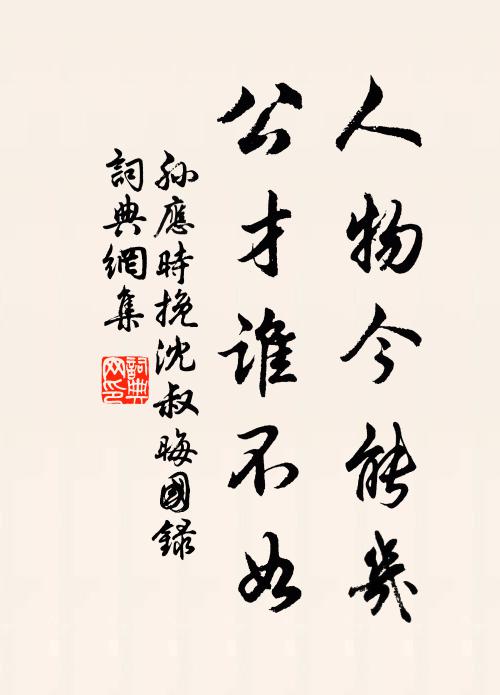 人物今能幾
公才誰不如
孫應時挽沈叔晦國録
詞典網集
詞典
网印